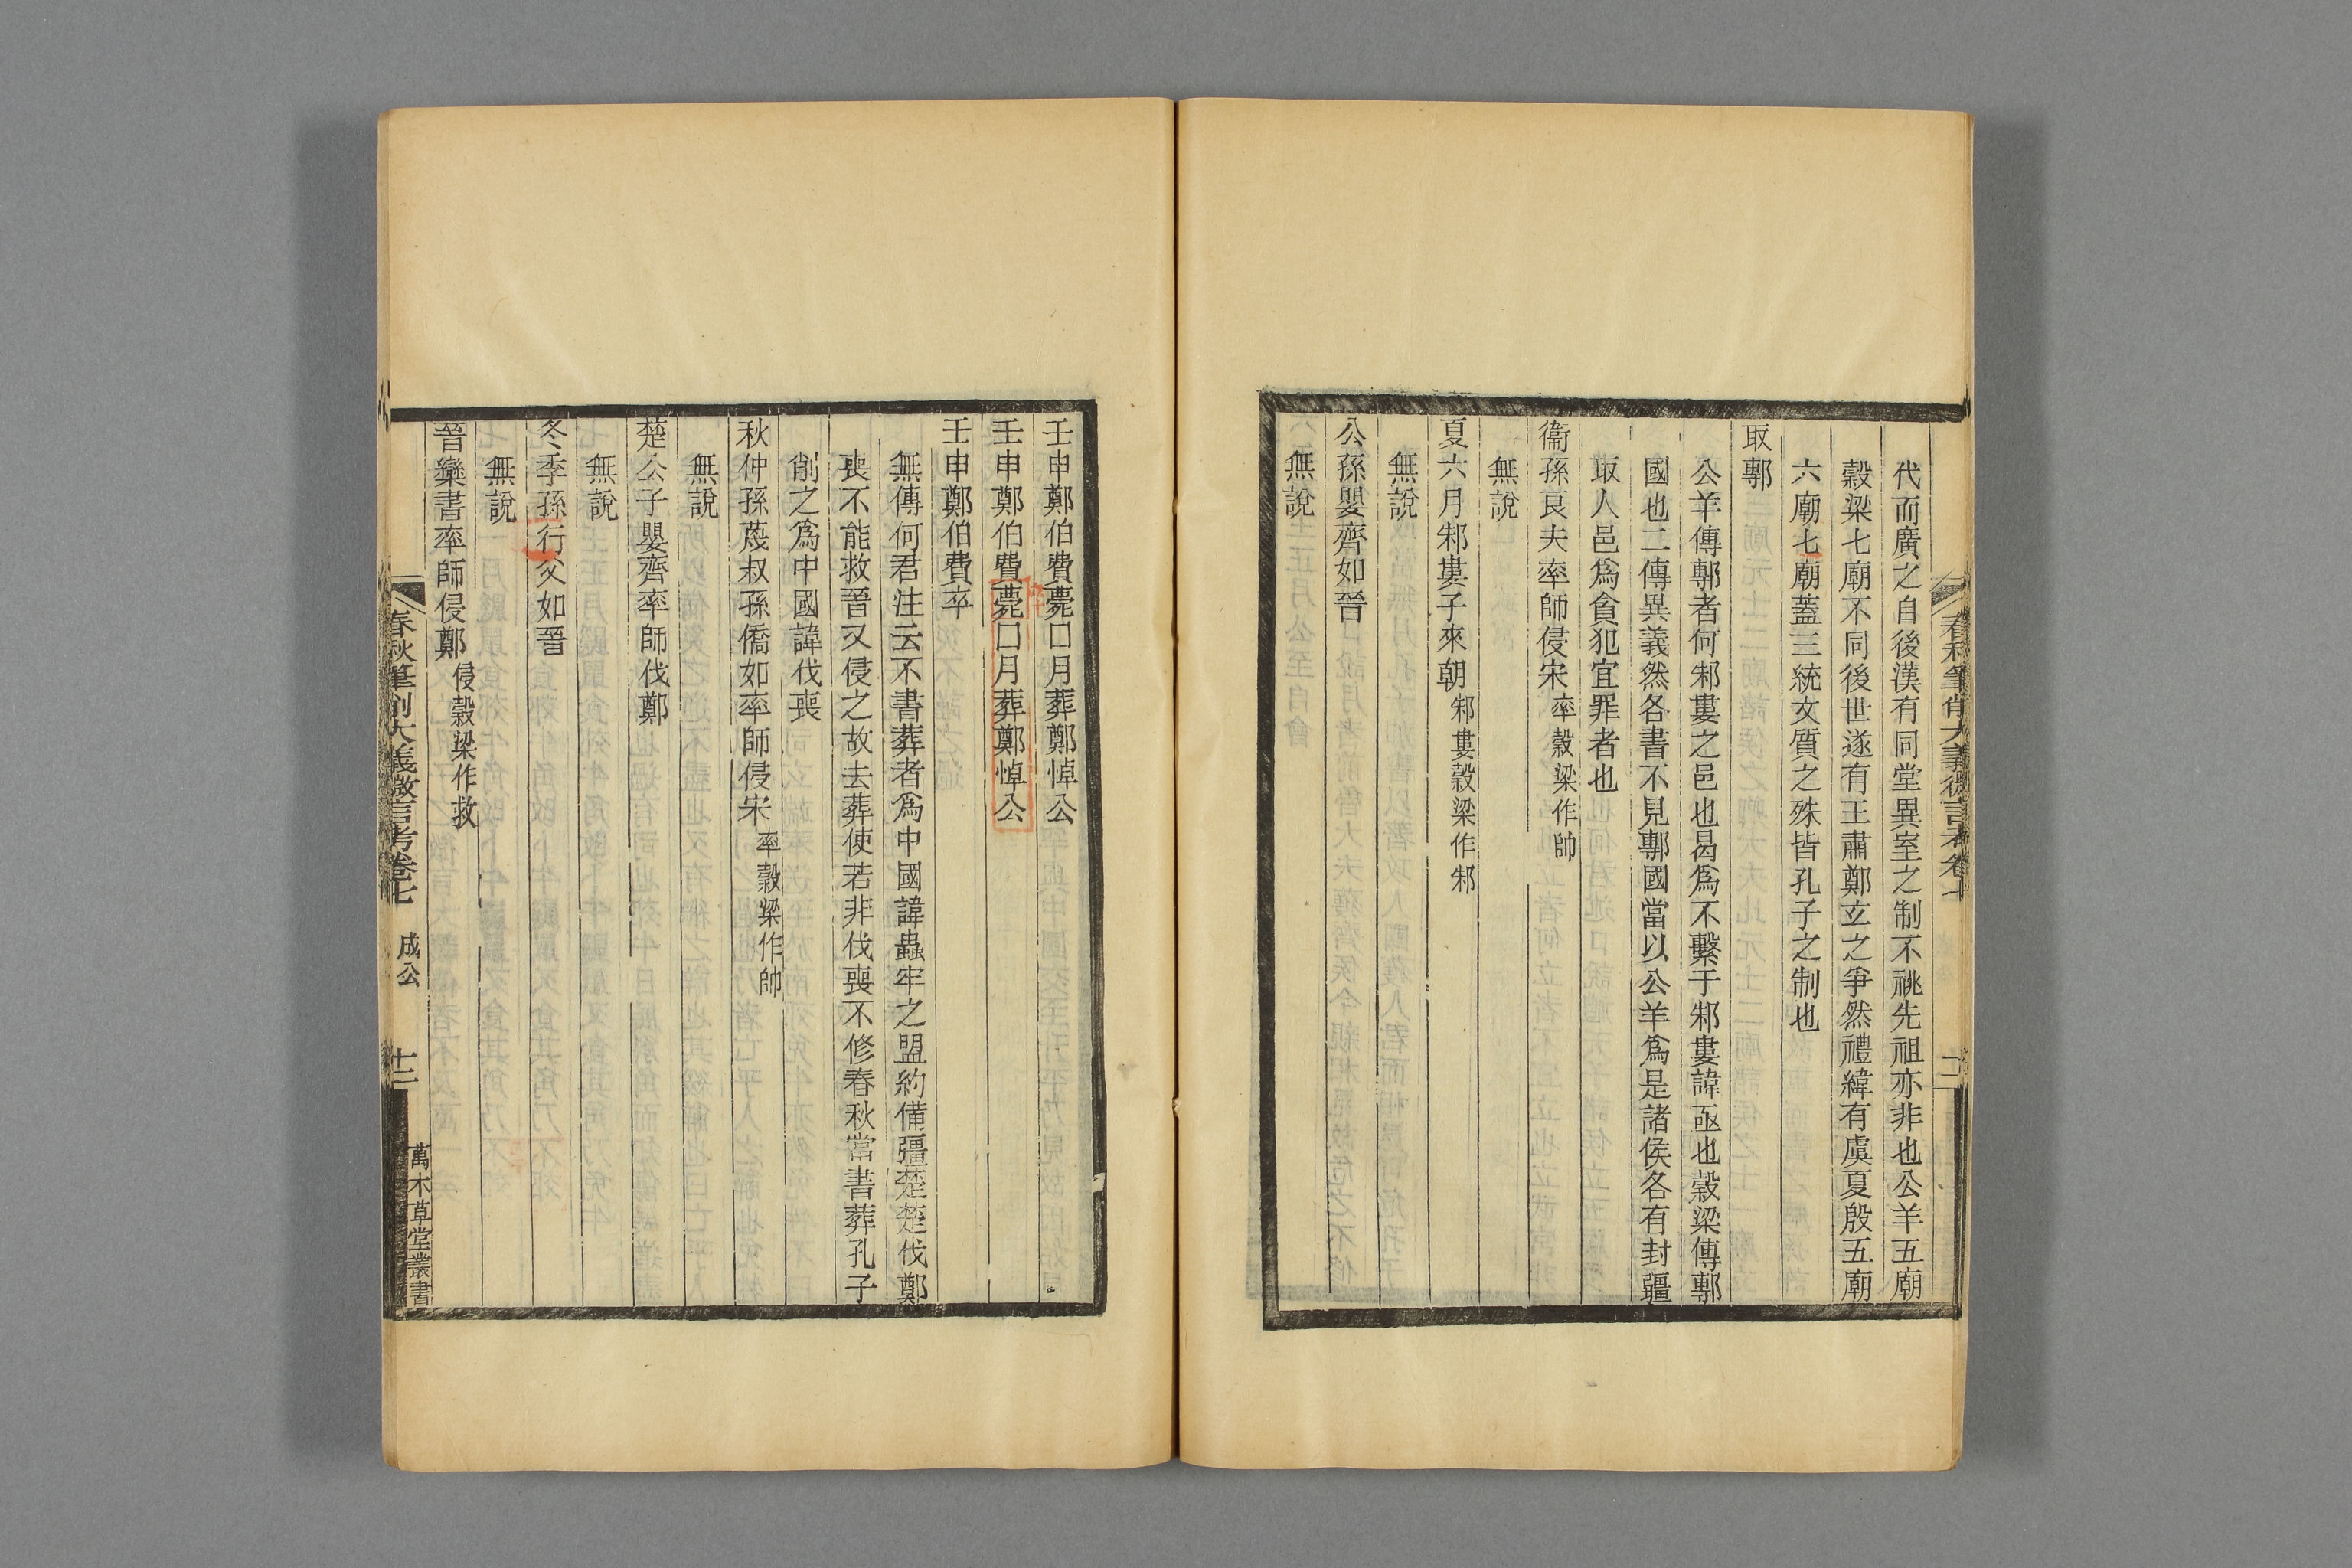 春秋筆削大義微言考卷七
十二
代而廣之自後漢有同堂異室之制不祧先祖亦非也公羊五廟
穀梁七廟不同後世遂有王肅鄭玄之爭然禮緯有虞夏殷五廟
六廟七廟蓋三統文質之殊皆孔子之制也
取鄟
公羊傳鄟者何邾婁之邑也曷爲不繫于邾婁諱亟也穀梁傳鄟
國也二傳異義然各書不見鄟國當以公羊爲是諸侯各有封疆
取人邑爲貪犯宜罪者也
衞孫良夫率師侵宋率穀梁作帥
無說
夏六月邾婁子來朝邾婁穀梁作邾
無說
公孫嬰齊如晉
無說
壬申鄭伯費薨口月葬鄭悼公
壬申鄭伯費薨口月葬鄭悼公
壬申鄭伯費卒
無傳何君注云不書葬者爲中國諱蟲牢之盟約備彊楚楚伐鄭
喪不能救晉又侵之故去葬使若非伐喪不修春秋當書葬孔子
削之爲中國諱伐喪
秋仲孫蔑叔孫僑如率師侵宋率穀梁作帥
無說
楚公子嬰齊率師伐鄭
無說
冬季孫行父如晉
無說
晉欒書率師侵鄭侵穀梁作救
春秋筆削大義微言考卷七 成公
十二
萬木草堂叢書